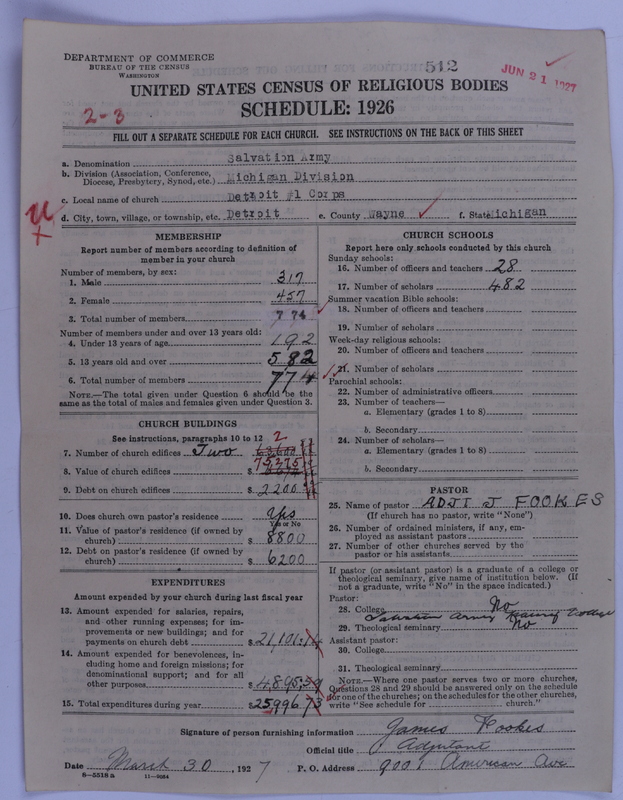 DEPARTMENT OF COMMERCE
BUREAU OF THE CENSUS
WASHINGTON
512
JUN 21 1927
UNITED STATES CENSUS OF RELIGIOUS BODIES
SCHEDULE: 1926
2-3
FILL OUT A SEPARATE SCHEDULE FOR EACH CHURCH. SEE INSTRUCTIONS ON THE BACK OF THIS SHEET
a. Denomination Salvation Army
b. Division (Association, Conference, Diocese, Presbytery, Synod, etc.) Michigan Division
c. Local name of church Detroit #1 Corps
d. City, town, village, or township, etc. Detroit e. County Wayne f. State Michigan
MEMBERSHIP
Report number of members according to definition of
member in your church
Number of members, by sex:
1. Male 317
2. Female 457
3. Total number of members 774
Number of members under and over 13 years old:
4. Under 13 years of age 192
5. 13 years old and over 582
6. Total number of members 774
NOTE.—The total given under Question 6 should be the
same as the total of males and females given under Question 3.
CHURCH BUILDINGS
See instructions, paragraphs 10 to 12
7. Number of church edifices Two 2
8. Value of church edifices $ 75375
9. Debt on church edifices $ 2200
10. Does church own pastor's residence yes
Yes or No
11. Value of pastor's residence (if owned by
church) $ 8800
12. Debt on pastor's residence (if owned by
church) $ 6200
EXPENDITURES
Amount expended by your church during last fiscal year
13. Amount expended for salaries, repairs,
and other running expenses; for im-
provements or new buildings; and for
payments on church debt $ 21,101.14
14. Amount expended for benevolences, in-
cluding home and foreign missions; for
denominational support; and for all
other purposes $ 4,895.59
15. Total expenditures during year $ 25996 73
CHURCH SCHOOLS
Report here only schools conducted by this church
Sunday schools:
16. Number of officers and teachers 28
17. Number of scholars 482
Summer vacation Bible schools:
18. Number of officers and teachers
19. Number of scholars
Week-day religious schools:
20. Number of officers and teachers
21. Number of scholars
Parochial schools:
22. Number of administrative officers
23. Number of teachers—
a. Elementary (grades 1 to 8)
b. Secondary
24. Number of scholars—
a. Elementary (grades 1 to 8)
b. Secondary
PASTOR
25. Name of pastor ADJT J FOOKES
(If church has no pastor, write "None")
26. Number of ordained ministers, if any, em-
ployed as assistant pastors
27. Number of other churches served by the
pastor or his assistants
If pastor (or assistant pastor) is a graduate of a college or
theological seminary, give name of institution below. (If
not a graduate, write "No" in the space indicated.)
Pastor:
28. College No
Salvation Army Training College
29. Theological seminary No
Assistant pastor:
30. College
31. Theological seminary
NOTE.—Where one pastor serves two or more churches,
Questions 28 and 29 should be answered only on the schedule
for one of the churches; on the schedules for the other churches,
write "See schedule for church."
Signature of person furnishing information James Fookes
Official title Adjutant
Date March 30, 1927 P. O. Address 9001 American Ave
8-5518 a 11-9034